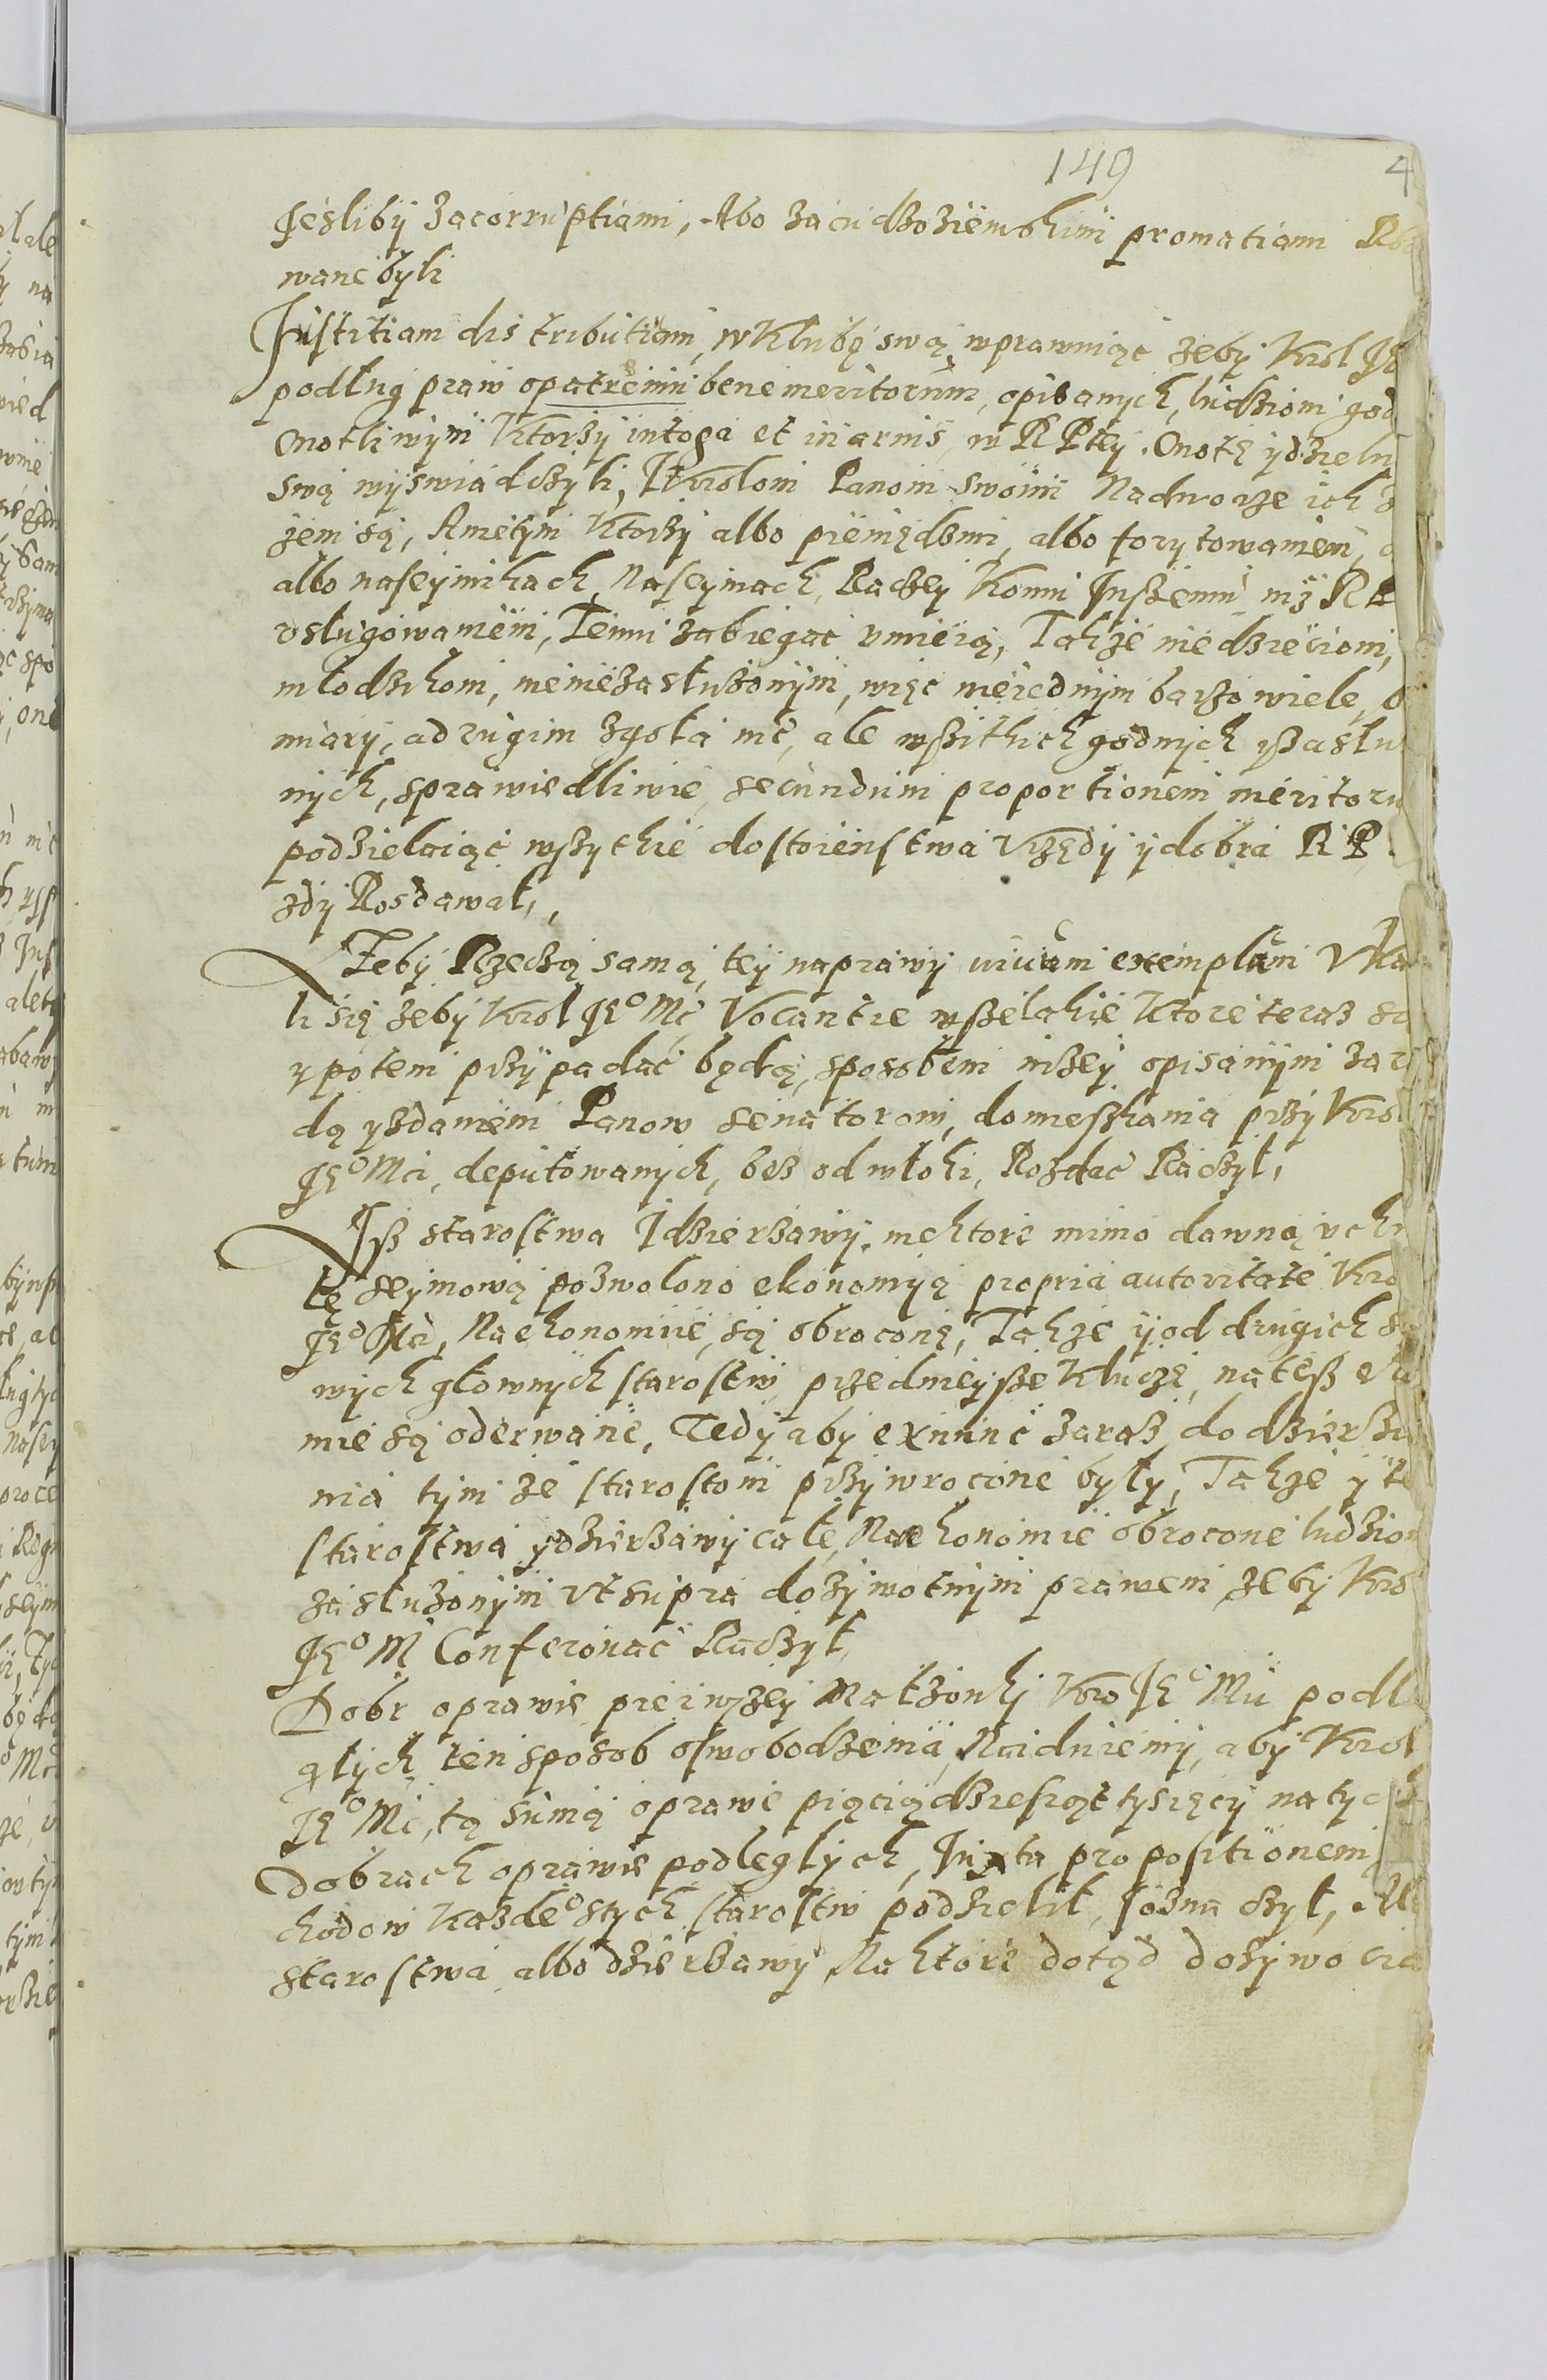 149 4
Jesliby zacorruptiami, Abo zacudzoziemskimi promotiami
wane byli
Justitiam distributiam, wKlubę swą, wprawuiąc żeby Krol Je
podług praw opatrzenim benemeritorum, opisanych, ludziom god
cnotliwym Ktorzy intoga et inarmis, w RPtey. Cnotę ydzieln
swą wyswiadczyli, JKrolom Panom swoim Nadworze ich
żem są, Anietym Ktorzy albo pieniędzmi, albo forytowaniem,
albo naseymikach, Naseymach, Raczey Komu Jnszemu niz RP
vsługowaniem, Temu zabiegac vmieią, Takze niedzieciom,
młodzikom, nieniezasłużonym, więc nieiednym barzo wiele,
miary, adrugim zgoła nic, ale wszitkich godnych yzasłu
nych, sprawiedliwie, secundum proportionem meritoru
podzielaiąc wszytkie dostoienstwa Vrzędy ydobra RP
zdy Rosdawał,
Zeby Rzeczą samą, tey naprawy viuum exemplum Vka
li się zeby Krol JeoMc, Vocantie wszelakie Ktore teraz są
ypotem przypadac będą, sposobem nizey opisanym za
dą yzdaniem Panow senatorow, domieszkania przy Krol
JeoMci, deputowanych, bez odwłoki, Rozdac Raczył,
Jsz starostwa Jdzierzawy niektore mimo dawną vch
łę seymową pozwolono ekonomyą propria autoritate Kro
JeoMci, Naekonomiie, są obrocone, Takze yod drugich
wych głownych starostw przednieysze Klucze, natesz eko
mie są oderwane, Tedy aby exnunc zaraz, do dzierża
nia tym ze starostom przywrocone były, Takze y te
starostwa ydzierzawy całe, Naekonomie obrocone ludziom
zasłuzonym Vtsupra dozywotnym prawem zeby Krol
JeoM Conferowac Raczył,
Dobr oprawie pierwszey Małzonki Kro JeoMci podle
głych, ten sposob oswobodzenia, Naiduiemy, aby Krol
JeoMc, tą sumą oprawe pięciądziesiąt tysięcy natych
dobrach oprawie podległych, Juxta propositionem
chodow Kazdeo stych starostw podzielił, soznaczył,
starostwa albo dzierzawy, Naktore dotąd dozywocia